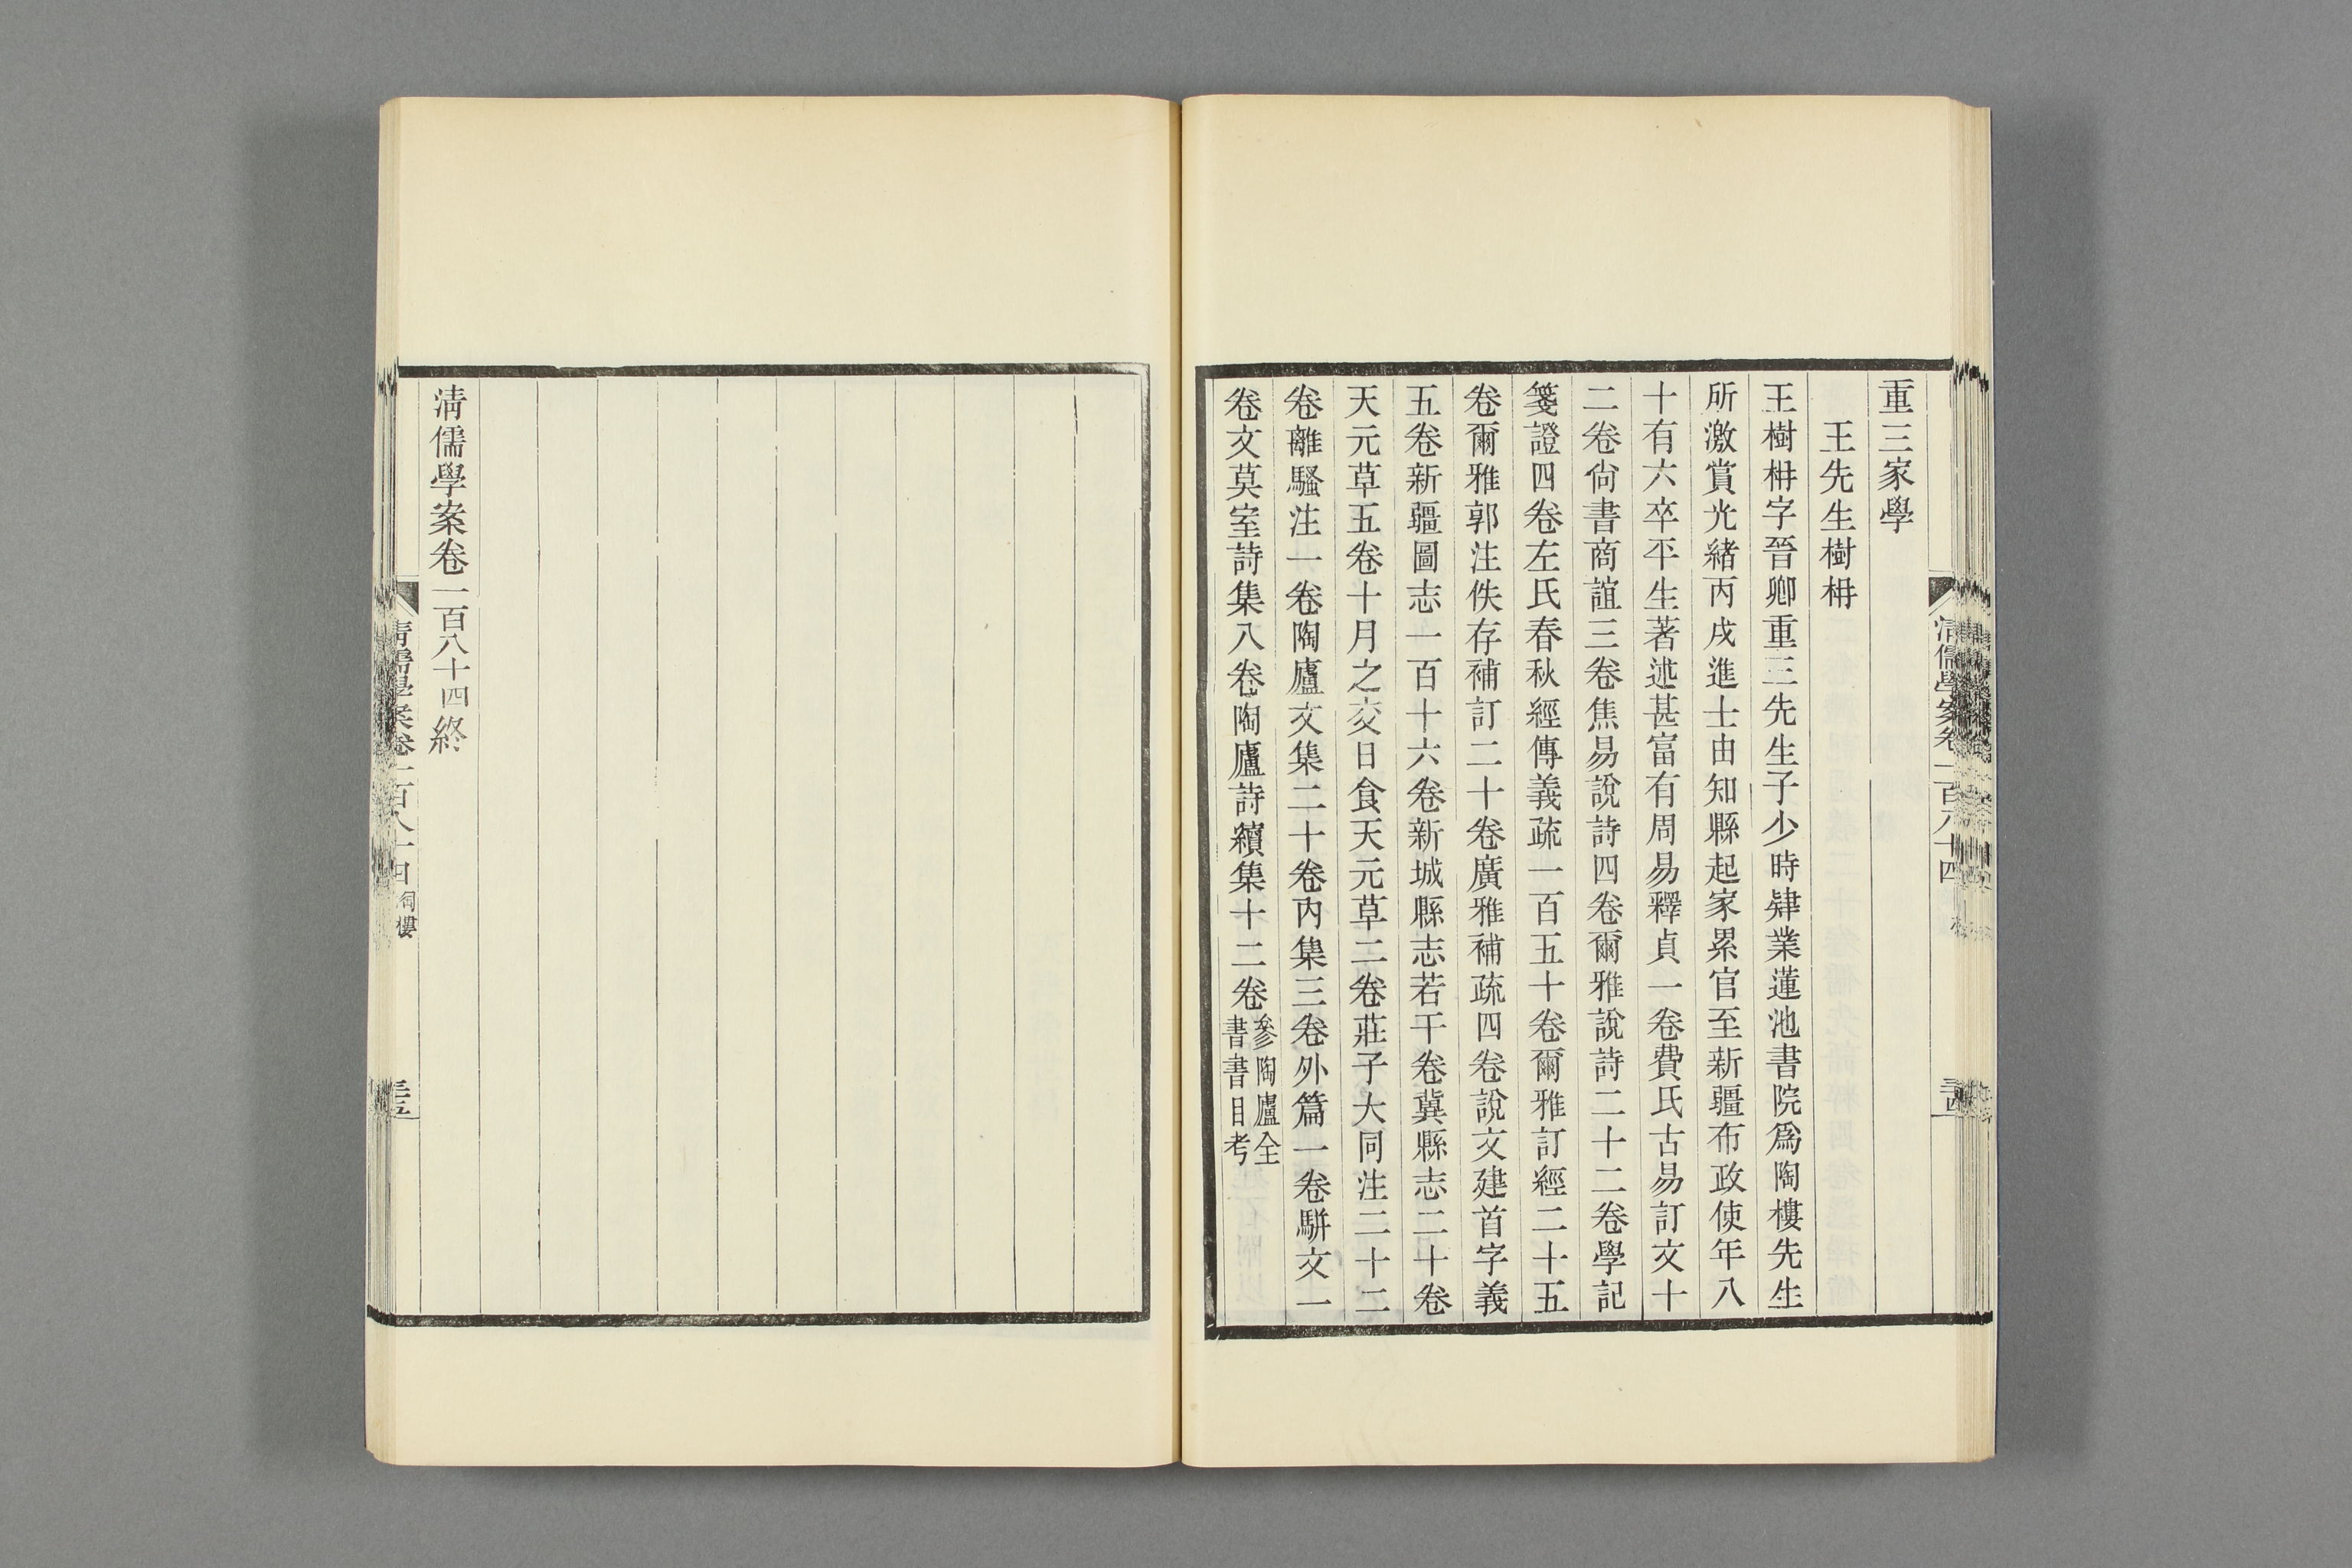 重三家學
王先生樹枏
王樹枏字晉卿重三先生子少時肄業蓮池書院爲陶樓先生
所激賞光緒丙戌進士由知縣起家累官至新疆布政使年八
十有六卒平生著述甚富有周易釋貞一卷費氏古易訂文十
二卷尙書商誼三卷焦易說詩四卷爾雅說詩二十二卷學記
箋證四卷左氏春秋經傳義疏一百五十卷爾雅訂經二十五
卷爾雅郭注佚存補訂二十卷廣雅補疏四卷說文建首字義
五卷新疆圖志一百十六卷新城縣志若干卷冀縣志二十卷
天元草五卷十月之交日食天元草二卷莊子大同注二十二
卷離騷注一卷陶廬文集二十卷內集三卷外篇一卷駢文一
卷文莫室詩集八卷陶廬詩續集十二卷參陶廬全
書書目考
清儒學案卷一百八十四
清儒學案卷一百八十四終
清儒學案卷一百八十四 陶樓
三五